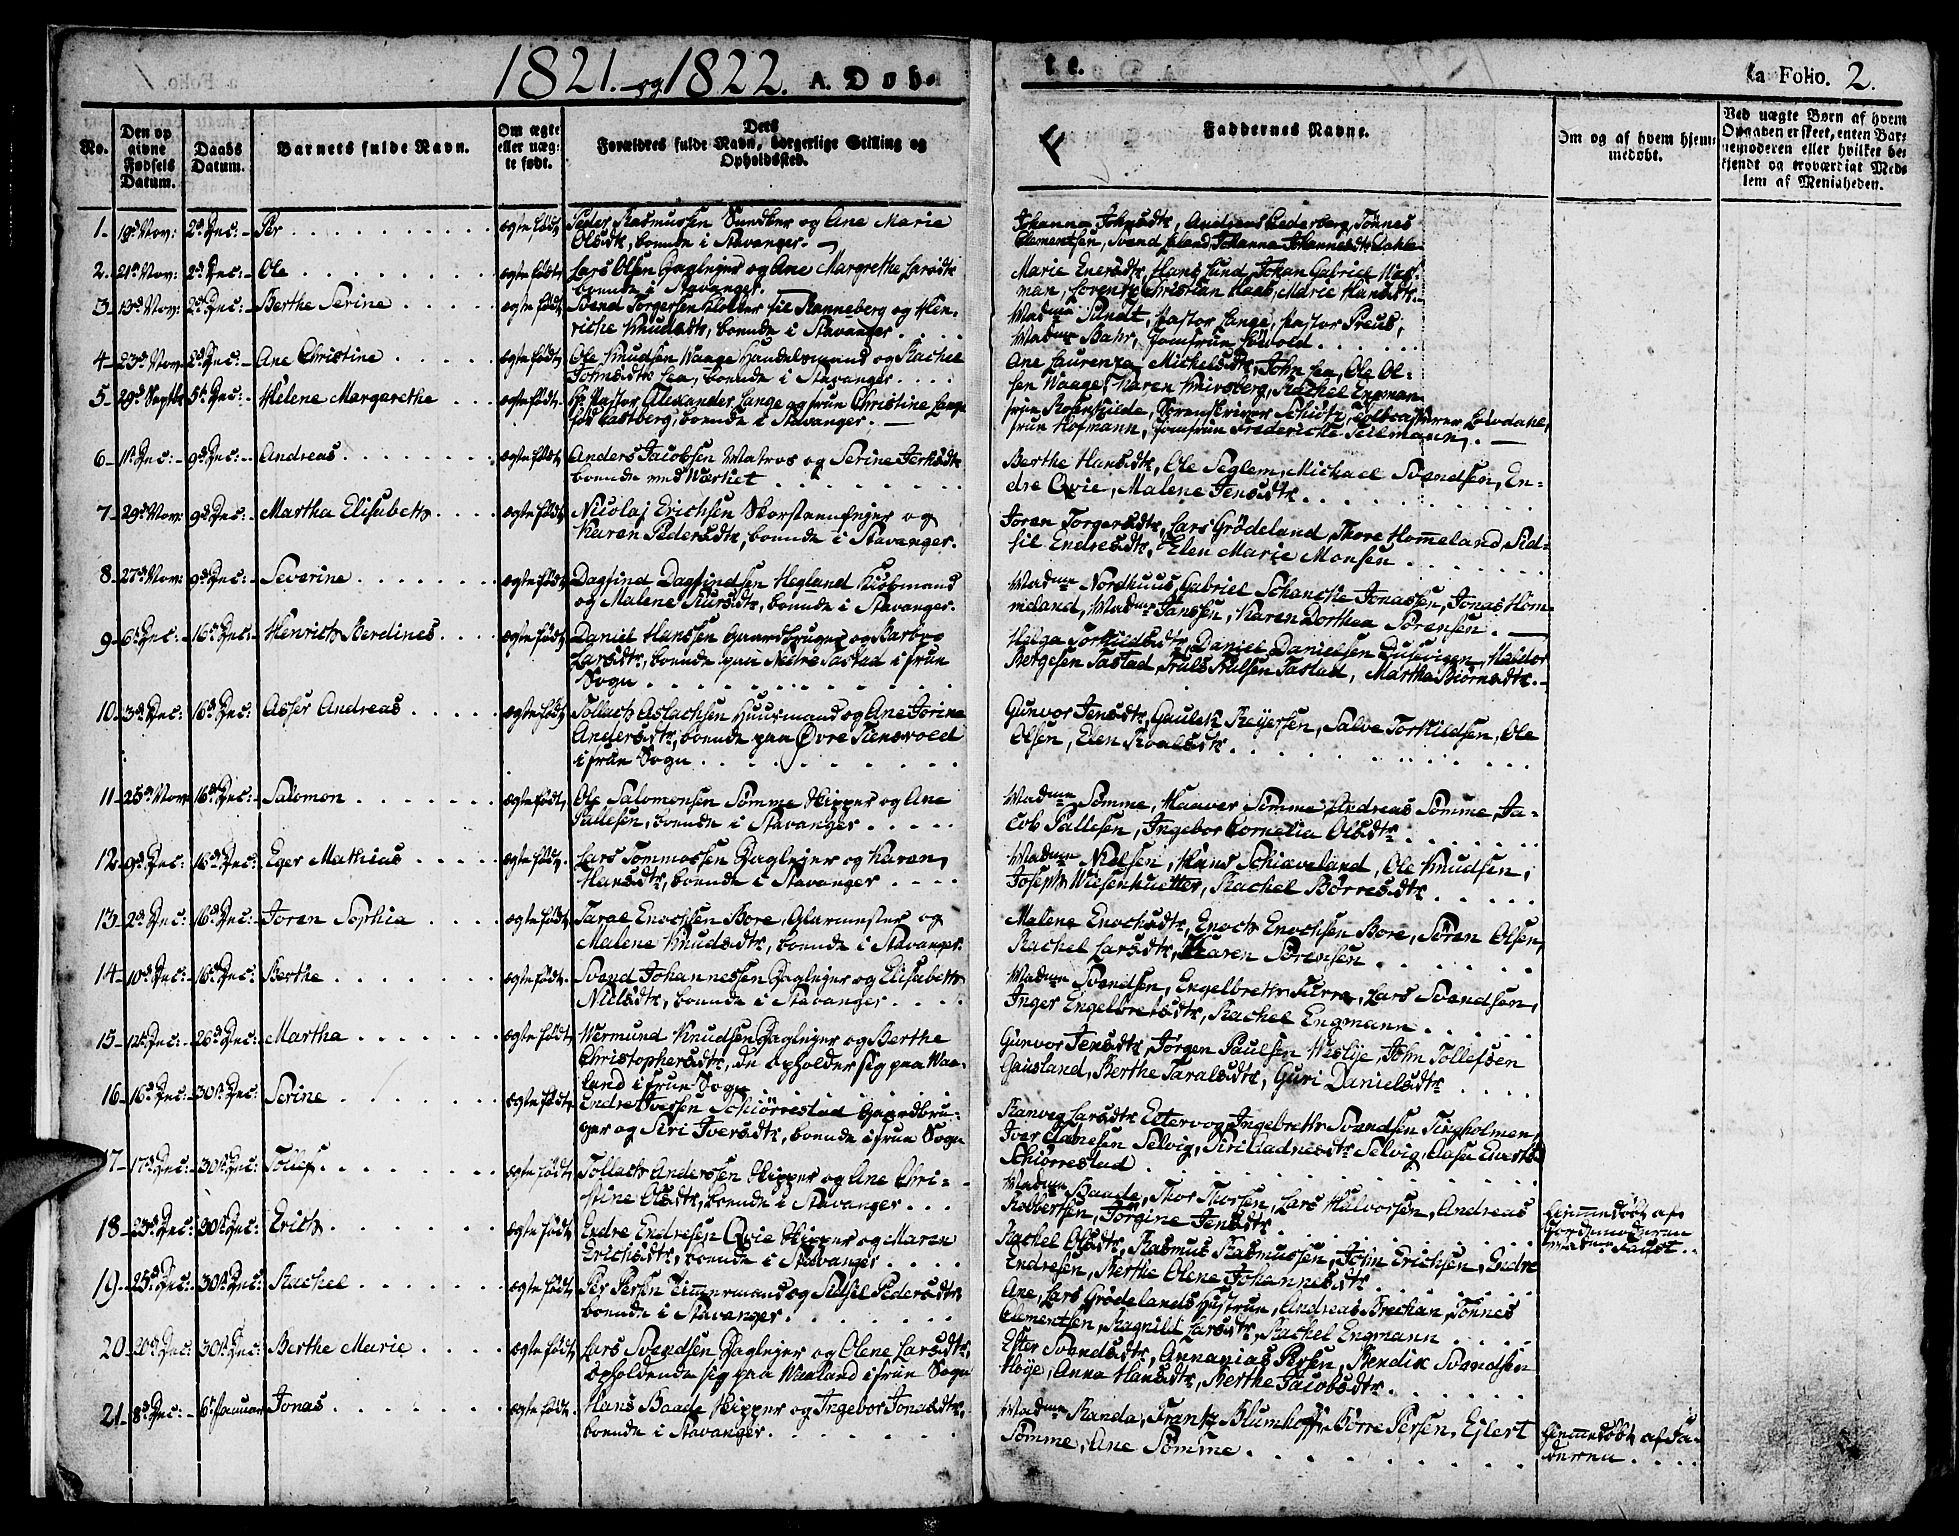 1821. og 1822. A. Døbte. la Folio. 2.
No.
Den opgivne Fødsels Datum.
Daabs Datum.
Barnets fulde Navn.
Om ægte eller uægte født.
Dets Forældres fulde Navn, borgerlige Stilling og Opholdssted.
Faddernes Navne.
Om og af hvem hjemmedøbt.
Ved uægte Børn af hvem
Opgaven er skeet, enten Bar-
nemoderen eller hvilket be-
kjendt og troværdigt Med-
lem af Menigheden.
1. 19d Nov: 2d Dec: Per ægte født Peder Rasmussen Sundber og Ane Marie
Olsdtr, boende i Stavanger.
Johanna Johnsdtr, Andreas Cederberg, Tønnes
Clementsen, Svend Eeland, Johanna Johannesdtr Dahle
2. 21d Nov: 2d Dec: Ole ægte født Lars Olsen Daglejer og Ane Margrethe Larsdtr
boende i Stavanger.
Marie Enersdtr, Hans Lund, Johan Gabriel
man, Lorentz Christian Haas, Marie Hansdtr.
3. 13d Nov: 2d Dec: Berthe Serine ægte født Svend Torgersen Klokker til Ranneberg og Hen-
riche Knudsdtr, boende i Stavanger
Madme Sundt, Pastor Lange, Pastor Preus,
Madme Bahr, Jomfrue Løwold.
4. 23d Nov: 2d Dec: Ane Christine ægte født Ole Knudsen Waage Handelsmand og Rachel
Johnsdtr Lea, boende i Stavanger
Ane Laurenza Mickelsdtr, John Lea, Ole Ol-
sen Waage, Karen Kruosberg, Rachel Engman
5. 29d Septbr 5t Dec: Helene Margarethe ægte født Hr Pastor Alexander Lange og frue Christine Lange
fød Castberg, boende i Stavanger.
frue Rosenkilde, Sorenskriver Schiøtz, Toldkasserer Løvdahl,
frue Hofmann, Jomfrue Fredericke Tellmann.
6. 1t Dec: 9d Dec: Andreas ægte født Anders Jacobsen Matros og Serine Jerksdtr
boende ved Værket
Berthe Hansdtr, Ole Seglem, Mickael Svendsen, En-
dre Qvie, Malene Jensdtr.
7. 29d Nov: 9d Dec: Martha Elisabeth ægte født Nicolaj Erichsen Skorsteensfejer og
Karen Pedersdtr, boende i Stavanger.
Joren Torgersdtr, Lars Grødeland, Thore Homeland, Sid-
sil Endresdtr, Elen Marie Monsen
8. 27d Nov: 9d Dec: Severine ægte født Dagfind Dagfindsen Hegland Kiøbmand
og Malene Siursdtr, boende i Stavanger.
Madme Nordhuus, Gabriel Schancke Jonassen, Jonas Hom-
meland, Madme Janssen, Karen Dorthea Sørensen.
9. 6t Dec: 16d Dec: Henrich Berdines ægte født Daniel Hanssen Gaardbruger og Barbro
Larsdtr, boende paa Nedre Tastad i frue
Sogn
Helga Torkildsdtr, Daniel Danielsen Dusevigen, Haldor
Bergesen Tastad, Truls Trulsen Tastad, Martha Biørnsdtr.
10. 3d Dec: 16d Dec: Asser Andreas ægte født Tollach Aslachsen Huusmand og Ane Jorine
Andersdtr, boende paa Øvre Tiensvold
i frue Sogn
Gunvor Jensdtr, Gaulek Reyersen, Salve Torkildsen, Ole
Olsen, Elen Roalsdtr.
11. 25d Nov: 16d Dec: Salomon ægte født Ole Salomonsen Sømme Skipper og Ane
Pallesen, boende i Stavanger
Madme Sømme, Haaver Sømme, Andreas Sømme, Ja-
cob Pallesen, Ingebor Cornelia Olsdtr.
12. 9d Dec: 16d Dec: Eger Mathias ægte født Lars Tommassen Daglejer og Karen
Hansdtr, boende i Stavanger
Madme Nielsen, Hans Schiæveland, Ole Knudsen,
Joseph Weisenhuetter, Rachel Børresdtr
13. 2d Dec: 16d Dec: Joren Sophia ægte født Taral Enochsen Bore, Glarmester og
Malene Knudsdtr, boende i Stavanger.
Malene Enochsdtr, Enoch Enochsen Bore, Søren Olsen,
Rachel Larsdtr, Karen Sørensen
14. 10d Dec: 16d Dec: Berthe ægte født Svend Johannessen Daglejer og Elisabeth
Nielsdtr, boende i Stavanger
Madme Svendsen, Engelbreth Furre, Lars Svendsen,
Inger Engelbretsdtr, Rachel Engmann
15. 12t Dec: 26d Dec: Martha ægte født Wermund Knudsen Daglejer og Berthe
Christophersdtr, de opholder sig paa Waa-
land i frue Sogn
Gunvor Jensdtr, Jørgen Paulsen Meslye, John Tollefsen
Gausland, Berthe Taralsdtr, Guri Danielsdtr
16. 16d Dec: 30t Dec: Serine ægte født Endre Iversen Schiørrestad Gaardbru-
ger og Siri Iversdtr, boende i frue Sogn
Ranveg Larsdtr Ectervog, Ingebreth Svendsen Tingholmen,
Iver Aanesen Selvig, Siri Aadnesdtr Selvig, Aase Evertsd
Schiørrestad
17. 17d Dec: 30t Dec: Tollef ægte født Tollach Anderssen Skipper og Ane Chri-
stine Olsdtr, boende i Stavanger
Madme Baade, Thor Thorsen, Lars Halvorsen, Andreas
Robertsen, Jørgine Jensdtr
18. 23d Dec: 30t Dec: Erich ægte født Endre Endresen Qvie Skipper og Maren
Erichsdtr, boende i Stavanger
Rachel Olsdtr, Rasmus Rasmussen, John Erichsen, Endre
Endresen, Berthe Olene Johannesdtr
Hiemmedøbt af
Jordemoderen
Madme Faust.
19. 25d Dec: 30t Dec: Rachel ægte født Per Persen Tømmermand og Sidsel Pedersdtr
boende i Stavanger
Ane, Lars Grødelands Hustrue, Andreas Brechan, Tønnes
Clementsen, Ragnild Larsdtr, Rachel Engmann
20. 20d Dec: 30t Dec: Berthe Marie ægte født Lars Svendsen Daglejer og Olene Larsdtr,
opholdende sig paa Waaland i frue Sogn
Ester Svendsdtr, Annanias Persen, Bendix Svendsen
Høye, Anna Hansdtr, Berthe Jacobsdtr
21. 8d Dec: 6t Januar Jonas ægte født Hans Baade Skipper og Ingebor Jonasdtr,
boende i Stavanger.
Madme Randa, Frantz Blumhoff, Børre Persen, Ejlert
Sømme, Ane Sømme.
Hiemmedøbt af Fa-
deren